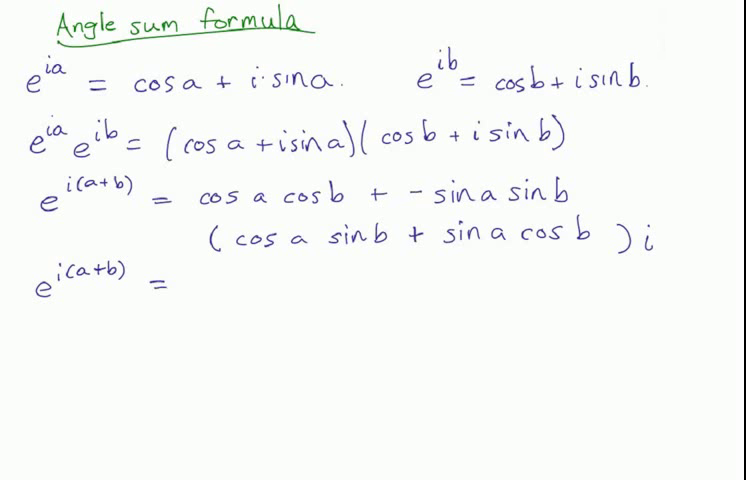 Angle sum formula
e^{ia} = cos a + i·sin a. e^{ib} = cos b + i sin b.
e^{ia} e^{ib} = (cos a + i sin a)(cos b + i sin b)
e^{i(a+b)} = cos a cos b + - sin a sin b
(cos a sin b + sin a cos b) i
e^{i(a+b)} =